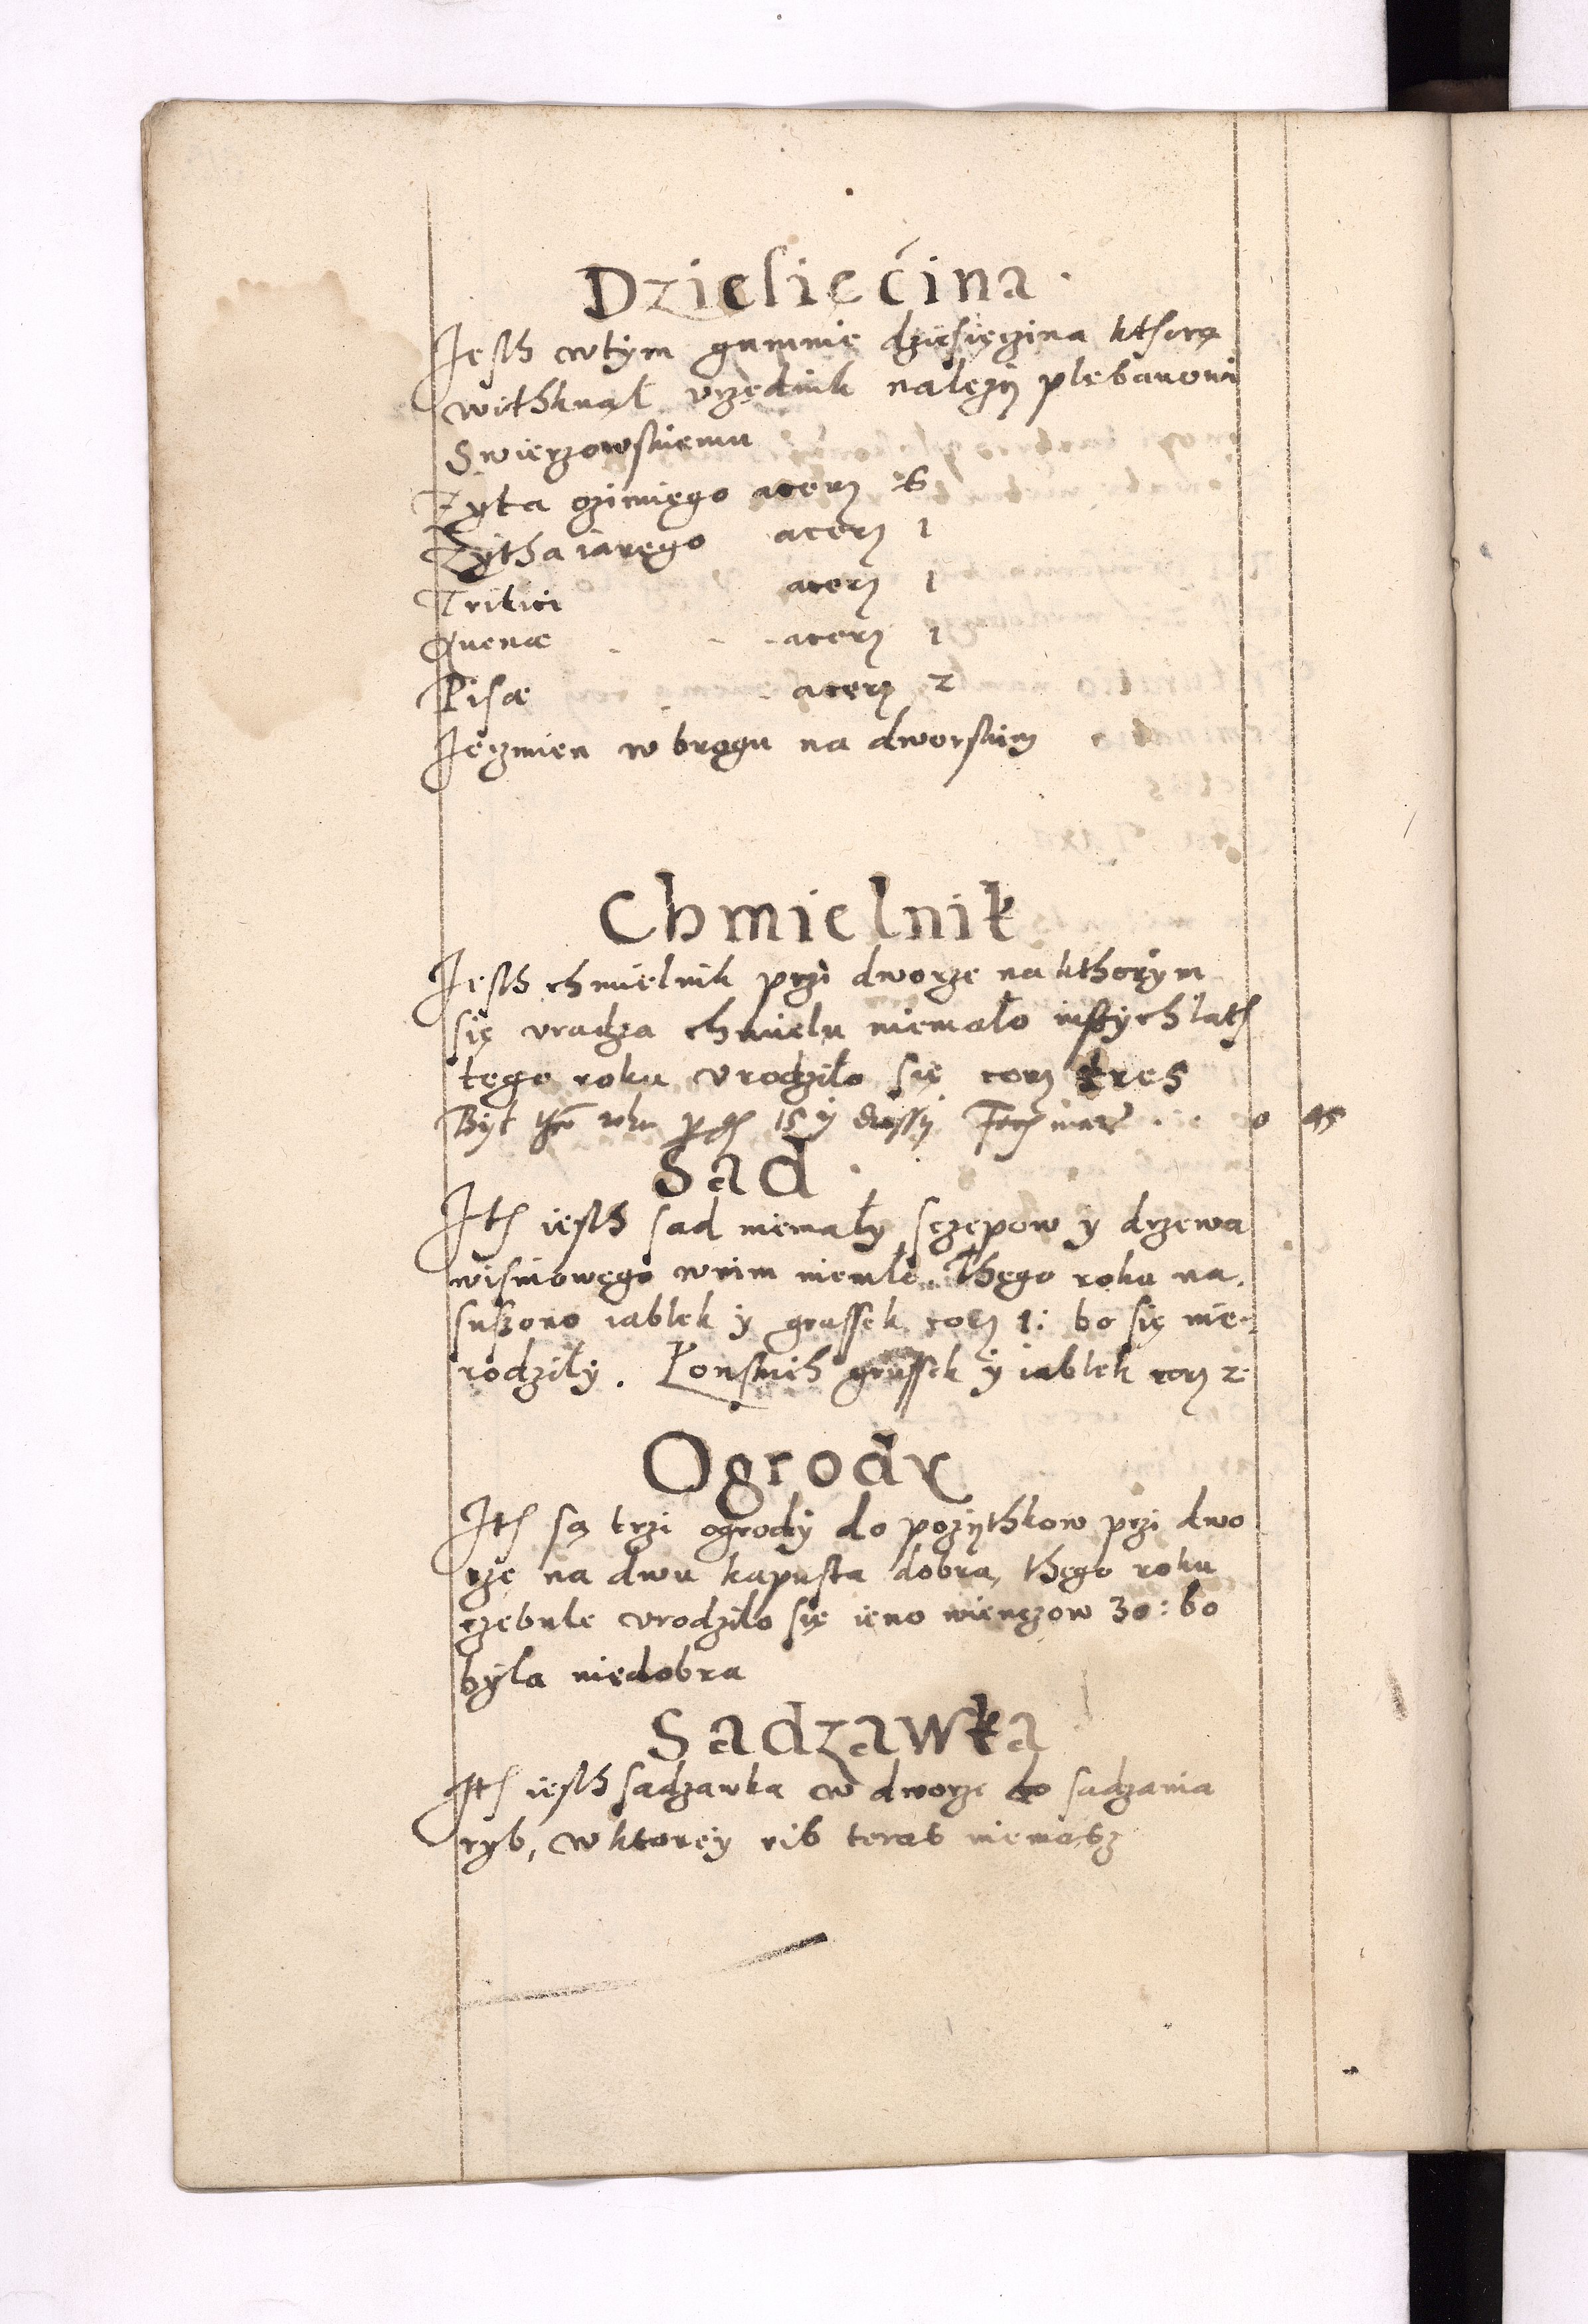 Dziesięćina
Jesth wtÿm gumnie dzięsięczina kthorą
withknął vrzędnik należÿ plebanowi
Swierzowskiemu
Żyta ozimięgo acerỹ 6
Zÿtha iarego acerỹ 1
Tritici acerỹ 1
Auenæ acerỹ 1
Pisæ acerỹ 2
Jęczmien w brogu na dworskim
Chmielnik
Jesth chmielnik przi dworze na kthorÿm
się vradza chmielu niemało inszÿch lath
tego roku vrodziło się corỹ tres
Bÿł roku 15 ÿ 0 45
Sad
Ith iesth sad niemałÿ sczepow ÿ drzewa
wisniowęgo wnim niemło. Thęgo roku na
suszono iablek ÿ grussek corỹ 1: bo się nie
rodziłÿ. Łonskich grussek ÿ iablek corỹ 2
Ogrody
Ith są trzi ogrodÿ do pozÿthkow przi dwo
rze na dwu kapusta dobra, thęgo roku
czebule vrodziło się ieno wienczow 30: bo
bÿla niedobra
Sadzawka
Ith iesth sadzawka w dworze do sadzania
ryb, w ktoreÿ rib teras niemasz